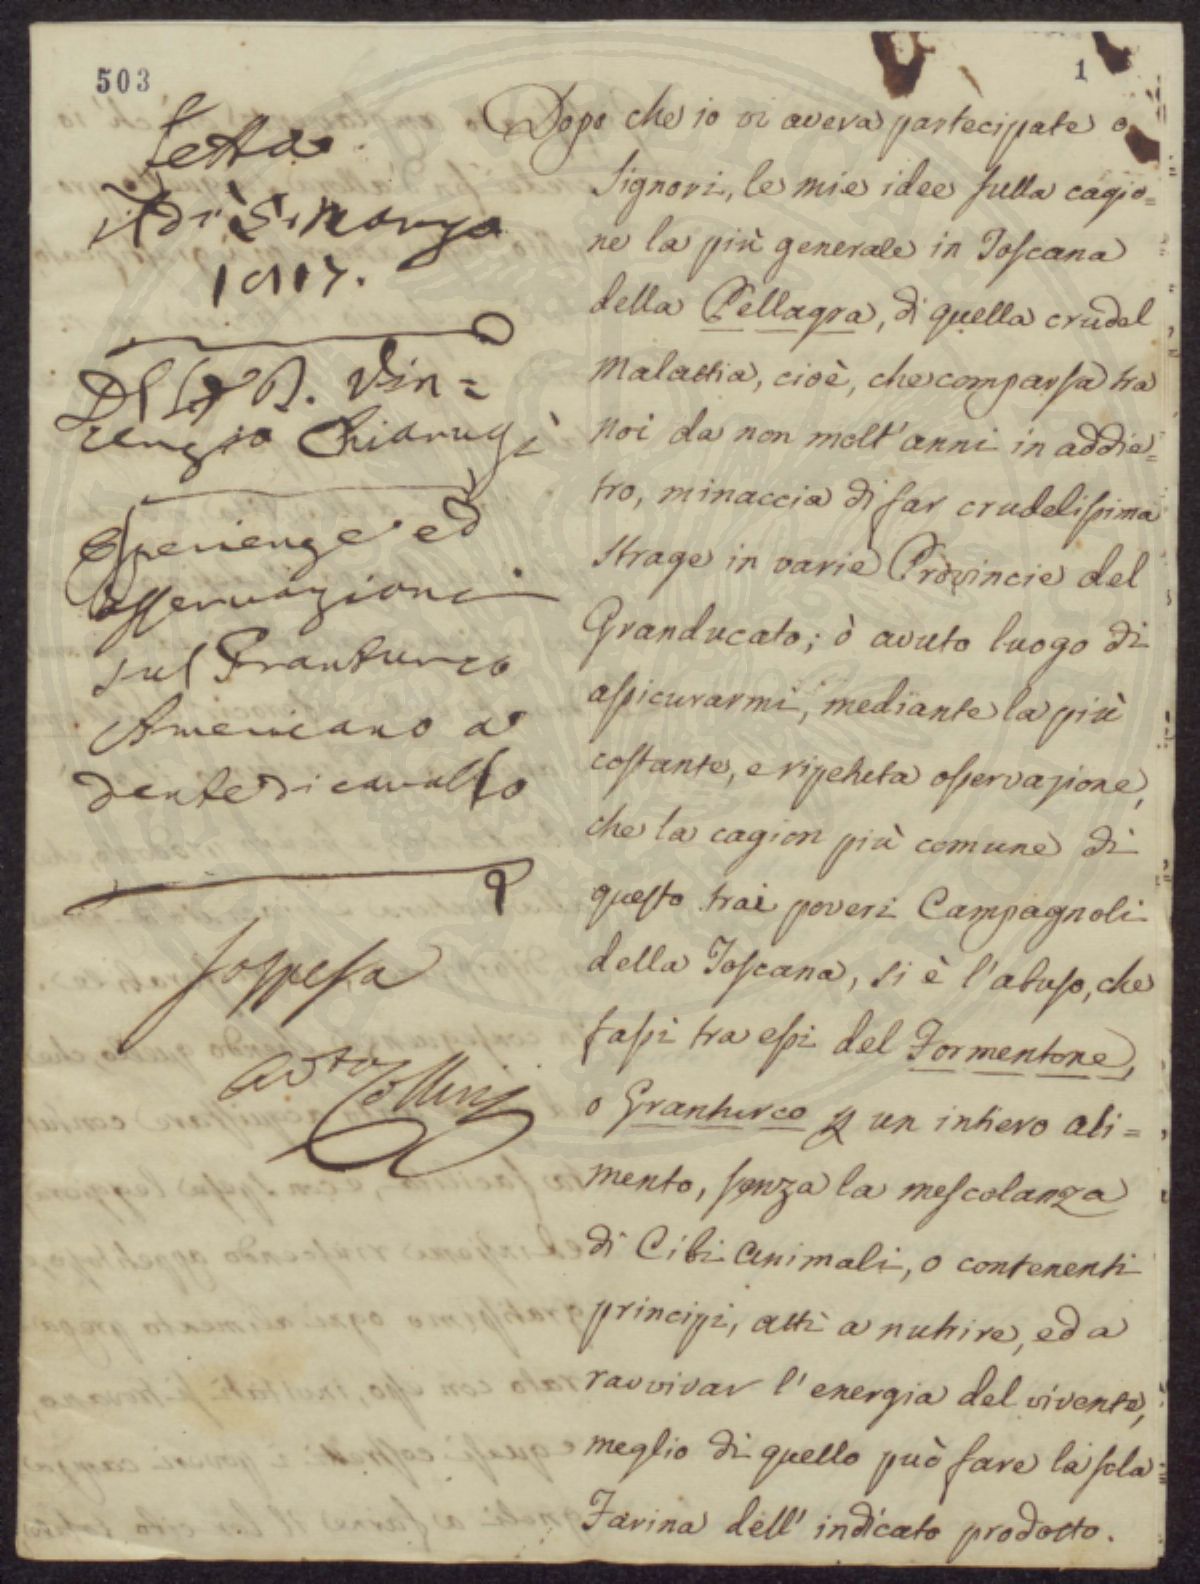 503
1
Letta
il dì 2. Marzo
1817.
Del Sig. D. Vin=
cenzio Chiarugi
Esperienze ed
Osservazioni
sul Granturco
Americano a
dente di cavallo
Soppressa
Ant. Tollini
Dopo che io vi aveva partecipate o
Signori, le mie idee sulla cagio=
ne la più generale in Toscana
della Pellagra, di quella crudel
malattia, cioè, che comparsa tra
noi da non molt'anni in addie=
tro, minaccia di far crudelissima
strage in varie Provincie del
Granducato; ò avuto luogo di
assicurarmi, mediante la più
costante, e ripetuta osservazione,
che la cagion più comune di
questo trai poveri Campagnoli
della Toscana, si è l'abuso, che
fassi tra essi del Formentone,
o Granturco p un intiero ali=
mento, senza la mescolanza
di Cibi animali, o contenenti
principj, atti a nutrire, ed a
ravvivar l'energia del vivente,
meglio di quello può fare la sola
Farina dell'indicato prodotto.